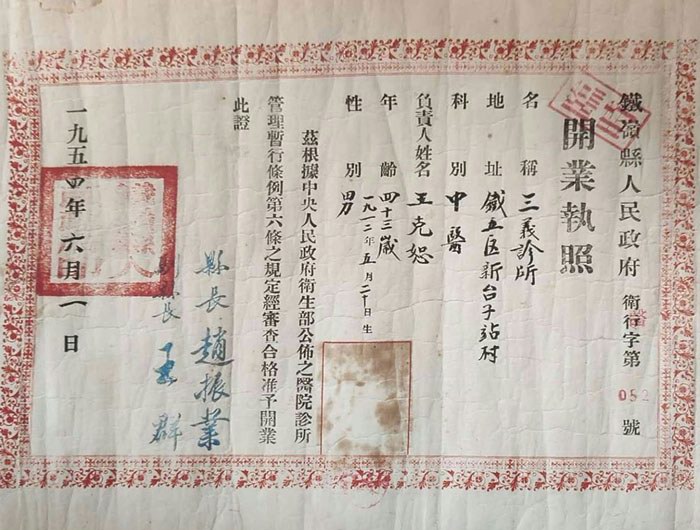 鐵嶺縣人民政府 衛行字第052號
開業執照
名稱 三義診所
地址 鐵五区新台子站村
科別 中醫
負責人姓名 王克恕
年齡 四十三歲
一九一二年五月二十日生
性別 男
茲根據中央人民政府衛生部公佈之醫院診所
管理暫行條例第六條之規定經審查合格准予開業
此證
縣長 趙振業
副縣長 王群
一九五四年六月一日